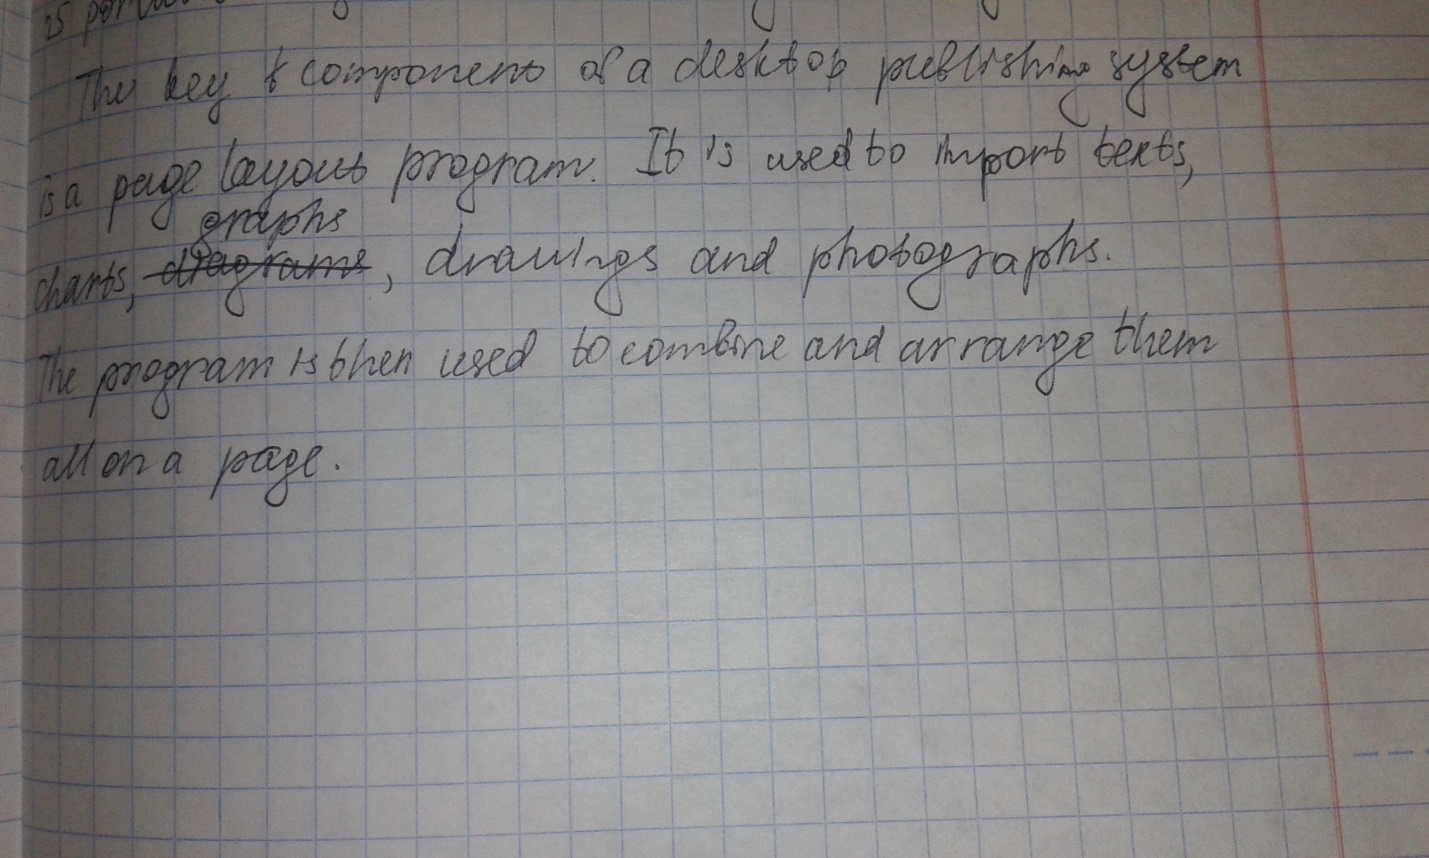 25
The key component of a desktop publishing system
is a page layout program. It is used to import texts,
graphs
charts, diagrams, drawings and photographs.
The program is then used to combine and arrange them
all on a page.